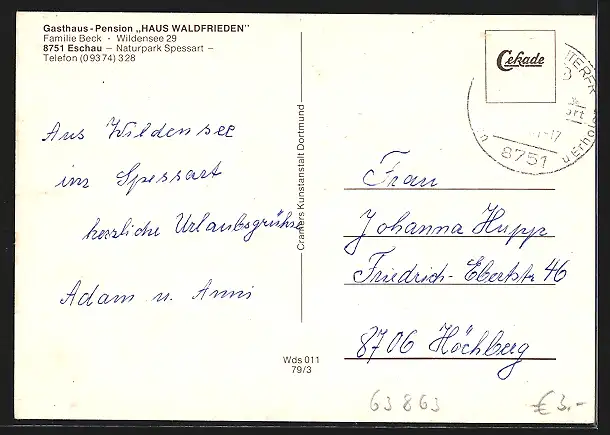 Gasthaus-Pension „HAUS WALDFRIEDEN"
Familie Beck · Wildensee 29
8751 Eschau – Naturpark Spessart –
Telefon (09374) 328
Aus Wildensee
im Spessart
herzliche Urlaubsgrüße
Adam u. Anni
Cramers Kunstanstalt Dortmund
Wds 011
79/3
Cekade
8751
Frau
Johanna Hupp
Friedrich-Ebertstr 46
8706 Höchberg
63863
€ 3.-